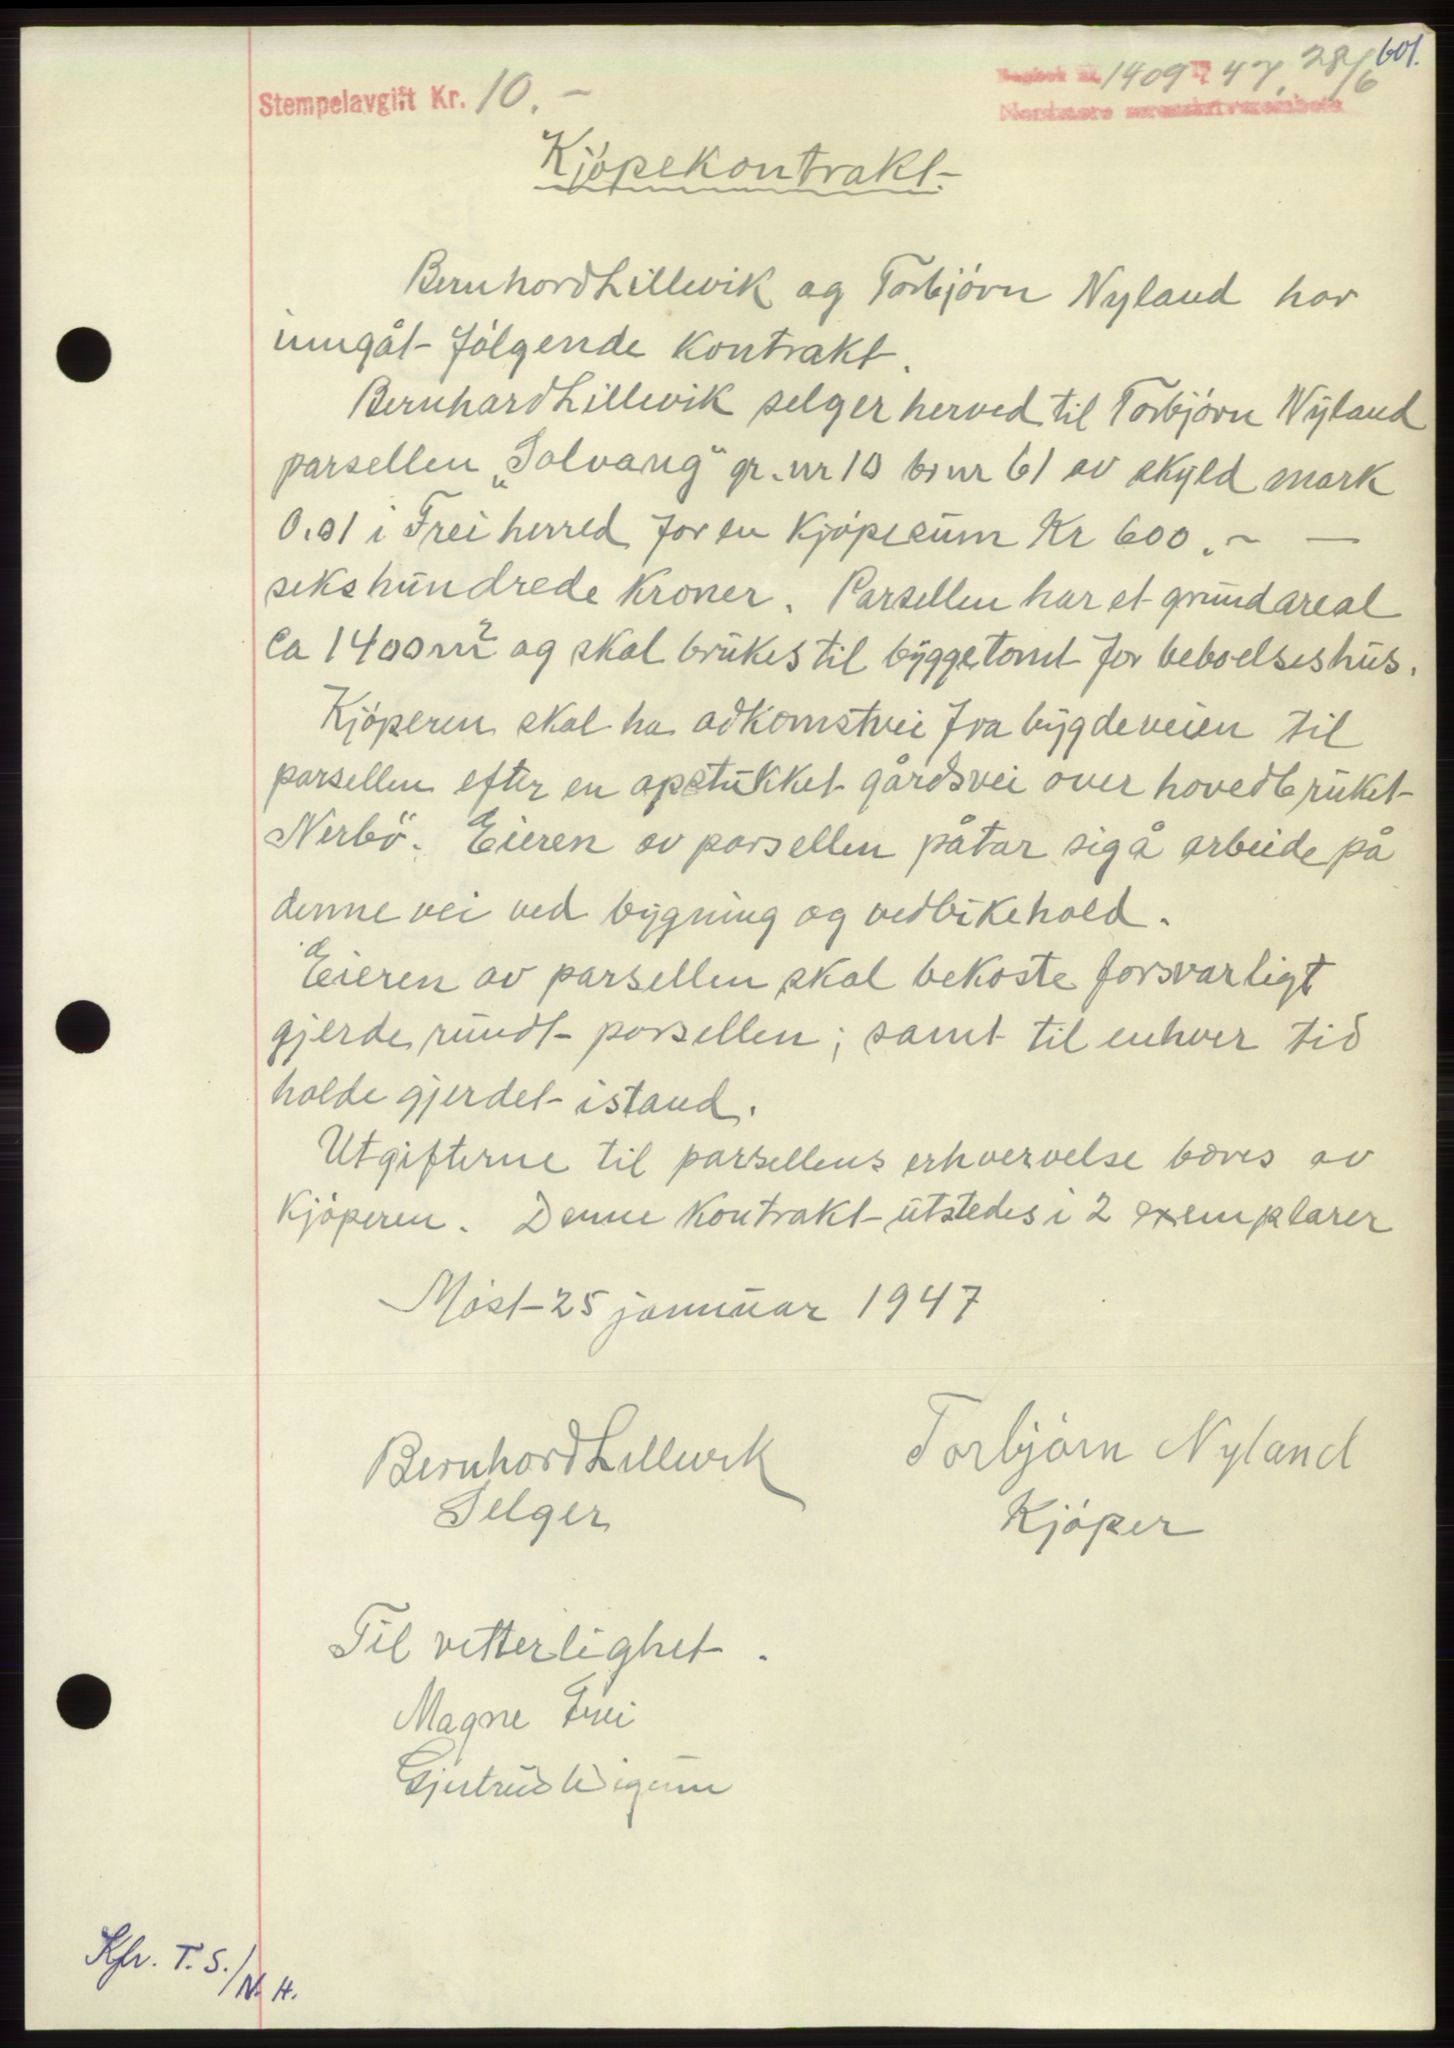 601.
Stempelavgift Kr. 10.-
Dagbok nr. 1409 19 47, 28/6
Nordmøre sorenskriverembete
Kjöpekontrakt.-
Bernhard Lillevik og Torbjörn Nyland har
inngåt fölgende kontrakt.
Bernhard Lillevik selger herved til Torbjörn Nyland
parsellen „Solvang“ gr. nr 10 br nr 61 av skyld mark
0.01 i Frei herred for en kjöpesum Kr 600.- —
sekshundrede kroner. Parsellen har et grundareal
Ca 1400m² og skal brukes til byggetomt for beboelseshus.
Kjöperen skal ha adkomstvei fra bygdeveien til
parsellen efter en opstukket gårdsvei over hovedbruket
Nerbö. Eieren av parsellen påtar sig å arbeide på
denne vei ved bygning og vedlikehold.
Eieren av parsellen skal bekoste forsvarligt
gjerde rundt parsellen; samt til enhver tid
holde gjerdet istand.
Utgifterne til parsellens erhvervelse bæres av
Kjöperen. Denne kontrakt utstedes i 2 exemplarer
Möst 25 januar 1947
Bernhard Lillevik
Selger
Torbjörn Nyland
Kjöper
Til vitterlighet.
Magne Frei
Gjertrud Wigum
Kfr. T. S./N. H.